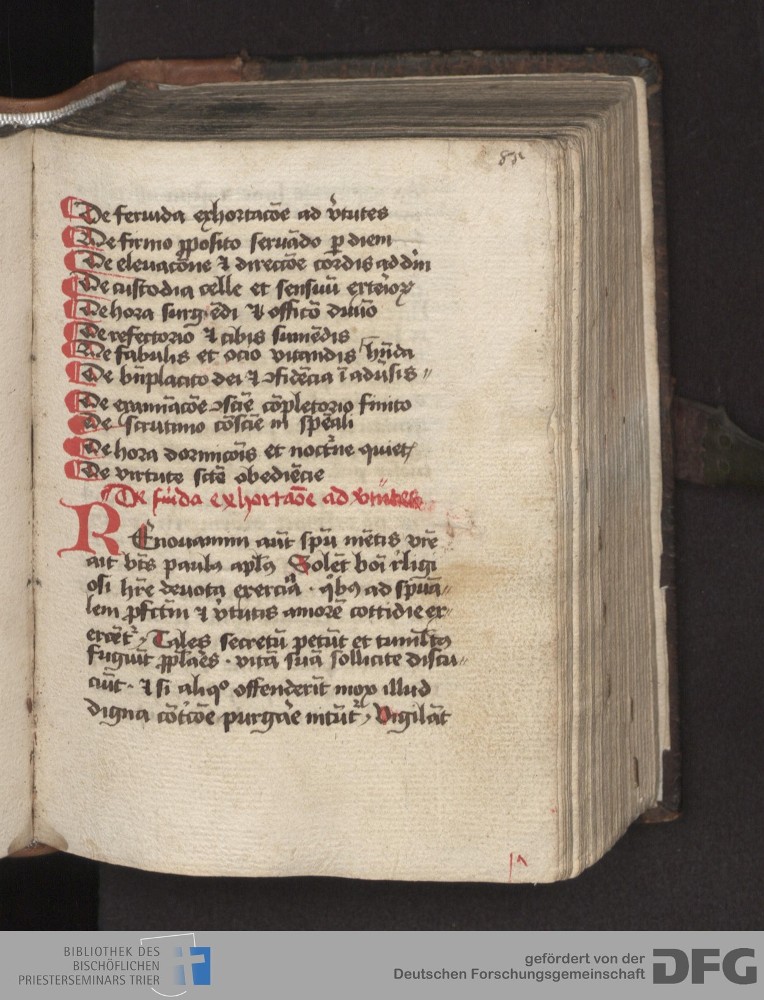 85
De feruida exhortacōe ad v̄tutes
De firmo ꝓposito seruādo ꝑ diem
De eleuacōne ⁊ direccōe cordis ad dn̄m
De custodia celle et sensuū exterioꝝ
De hora surgēdi ⁊ officō diuīo
De refectorio ⁊ cibis sumēdis
De fabulis et ocio vitandis
De bn̄placito dei ⁊ ꝯfidēcia ī adūsis
De examīacōe ꝯsciē cōpletorio finito
De scrutinio cōsciē in spēali
De hora dormicōis et noctr̄ne quiet
De virtute sctē obediēcie
De fūida exhortacōe ad v̄tutes
REnouamini aūt spū mētis vr̄e
ait bt̄s paulꝯ apl̄s Solēt boī r̄ligi
osi hr̄e deuota exercia · qͥbꝯ ad spūa
lem ꝓfctm̄ ⁊ v̄tutis amorē cottidie ex
ercēt Tales secretū petūt et tumltꝯ
fugiūt ꝓplāes · vitā suā sollicite discu
ciūt · ⁊ si aliqͦ offenderīt mox illud
digna cōtͥcōe purgāe nitūtͬ Vigilāt
BIBLIOTHEK DES
BISCHÖFLICHEN
PRIESTERSEMINARS TRIER
gefördert von der
Deutschen Forschungsgemeinschaft
DFG